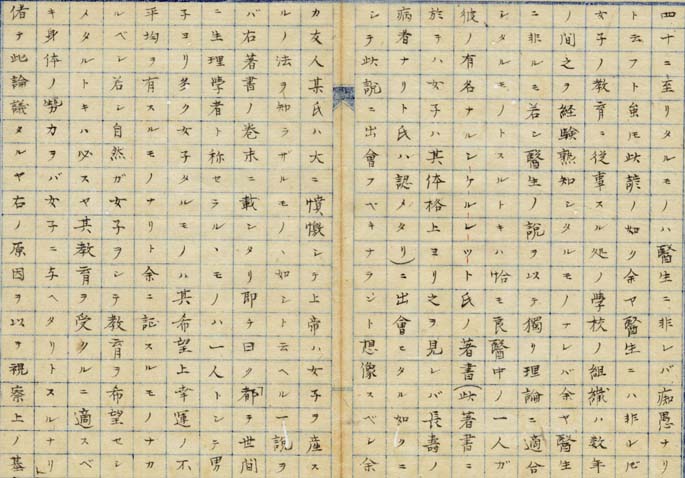 四十ニ至リタルモノハ醫生ニ非レバ痴愚ナリ
ト云フト𧈧モ此諺ノ如リ余ヤ醫生ニハ非レ𪜈
女子ノ教育ニ従事スル処ノ學校ノ組織ハ数年
ノ間之ヲ経験熟知シタルモノナレバ余ヤ醫生
ニ非ルモ若シ醫生ノ説ヲ以テ獨リ理論ニ適合
シタルモノトスルトキハ恰モ良醫中ノ一人ガ
彼ノ有名ナルンケルレット氏ノ著書(此著書ニ
於テハ女子ハ其体格上ヨリ之ヲ見レバ長壽ノ
病者ナリト氏ハ認メタリ)ニ出會ヒタル如クニ
シテ此説ニ出會フベキナラジト想像スベレ余
カ友人某氏ハ大ニ憤懣シテ上帝ハ女子ヲ産ス
ルノ法ヲ知ラザルモノヽ如シト云ヘル一説ヲ
バ右著書ノ巻末ニ載シタリ即チ曰ク「都テ世間
ニ生理學者ト称セラルヽモノハ一人トシテ男
子ヨリ多ク女子タルモノハ其希望上幸運ノ不
平均ヲ有スルモノナリト余ニ証スルモノナカ
ルベレ若シ自然ガ女子ヲシテ教育ヲ希望セシ
メタルトキハ必スヤ其教育ヲ受クルニ適スベ
キ身体ノ勢力ヲバ女子ニ与ヘタリトスルナリ
偖テ此論議タルヤ右ノ原因ヲ以ヲ視察上ノ基